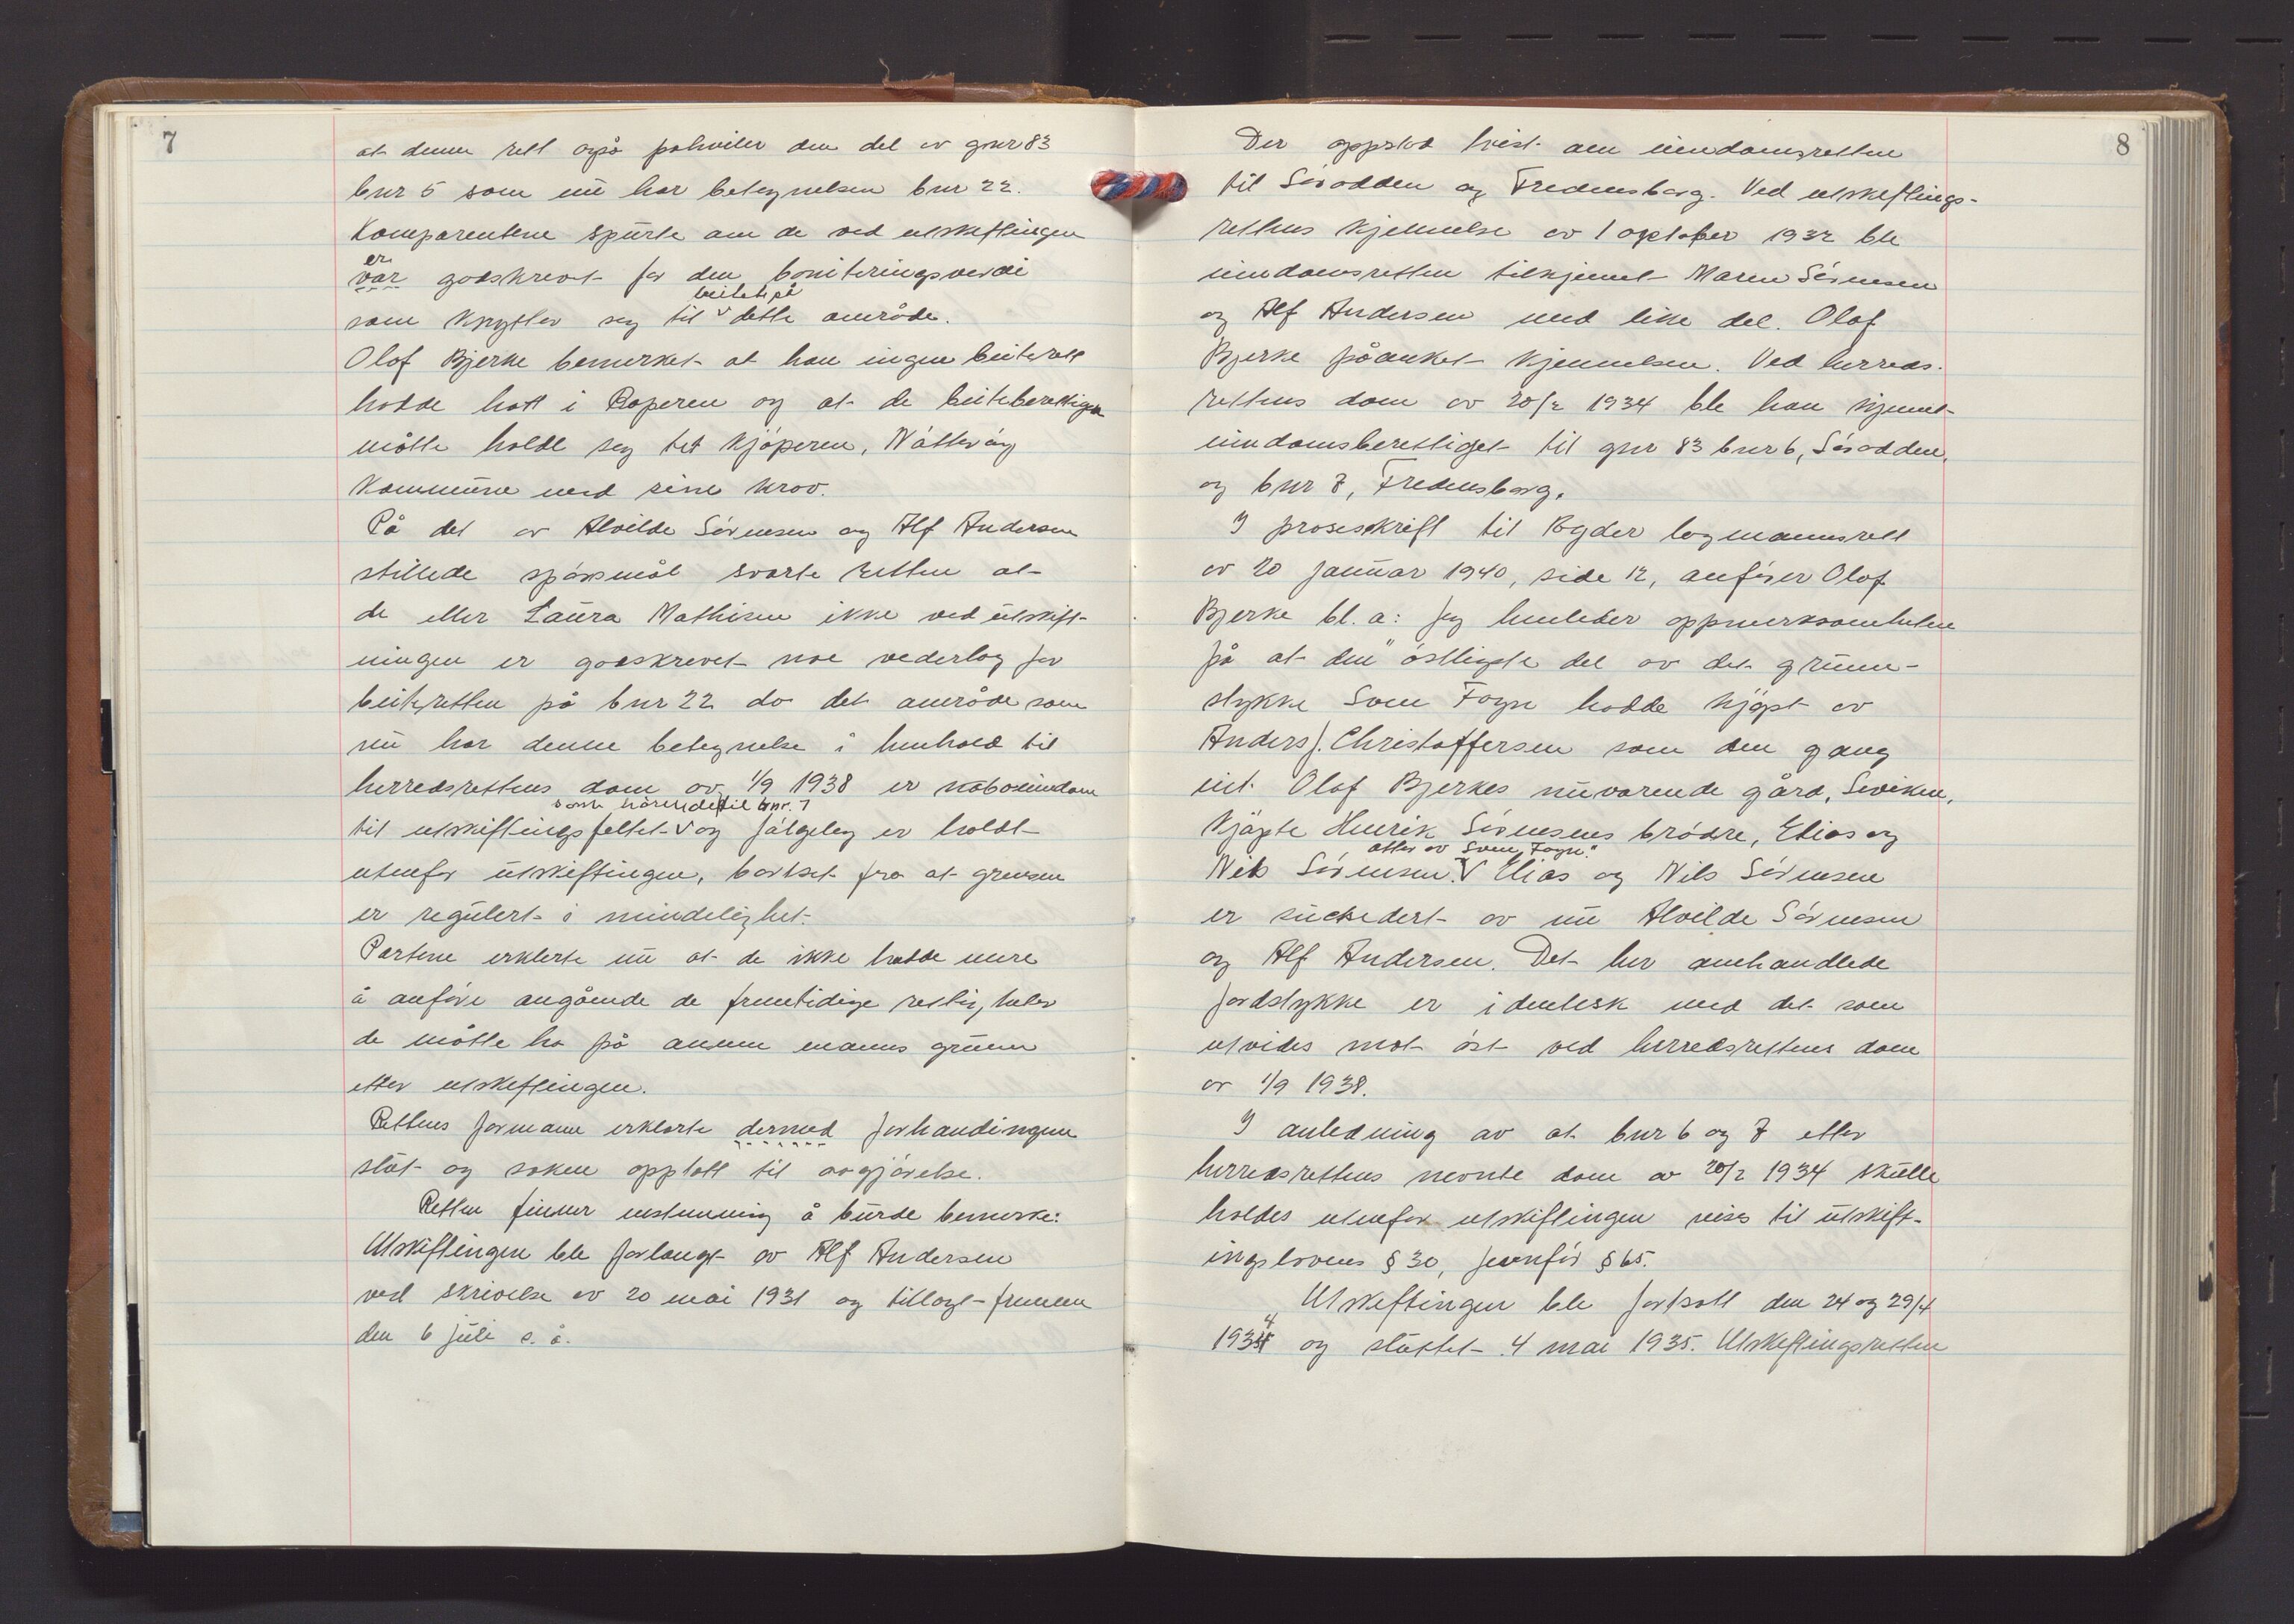 7
at denne rett også påhviler den del av gnr 83
bnr 5 som nu har betegnelsen bnr 22.
Komparentene spurte om de ved utskiftingen
er
var godskrevet for den boniteringsverdi
beitet på
som knytter seg til v dette område.
Olof Bjerke bemerket at han ingen beiterett
hadde hatt i Raperen og at de beiteberettigede
måtte holde seg til kjøperen, Nøtterøy
kommune med sine krav.
På det av Alvilde Sørensen og Alf Andersen
stillede spørsmål svarte retten at
de eller Laura Mathisen ikke ved utskift-
ningen er godskrevet noe vederlag for
beiteretten på bnr 22 da det område som
nu har denne betegnelse i henhold til
herredsrettens dom av 1/9 1938 er naboeiendom
som hørende til bnr. 7
til utskiftingsfeltet v og følgelig er holdt
utenfor utskiftingen, bortset fra at grensen
er regulert i mindelighet.
Partene erklerte nu at de ikke hadde mere
å anføre angående de fremtidige rettigheter
de måtte ha på annen manns grunn
etter utskiftingen.
Rettens formann erklerte dermed forhandingen
slut og saken opptatt til avgjørelse.
Retten finner enstemmig å burde bemerke:
Utskiftingen ble forlangt av Alf Andersen
ved skrivelse av 20 mai 1931 og tillagt fremme
den 6 juli s. å.
8
Der oppstod tvist om eiendomsretten
til Sørodden og Fredensborg. Ved utskiftings-
rettens kjennelse av 1 oktober 1932 ble
eiendomsretten tilkjennet Maren Sørensen
og Alf Andersen med like del. Olof
Bjerke påanket kjennelsen. Ved herreds-
rettens dom av 20/2 1934 ble han kjennet
eiendomsberettiget til gnr 83 bnr 6, Sørodden,
og bnr 7, Fredensborg.
I prosesskrift til Agder lagmannsrett
av 20 januar 1940, side 12, anfører Olof
Bjerke bl. a: Jeg henleder oppmerksomheten
på at den "østligste del av det grunn-
stykke Sven Foyn hadde kjøpt av
Anders J. Christoffersen som den gang
eiet Olof Bjerkes nuvarende gård, Seviken,
kjøpte Henrik Sørensens brødre, Elias og
atter av Sven Foyn."
Nils Sørensen. V Elias og Nils Sørensen
er suckedert av nu Alvilde Sørensen
og Alf Andersen. Det her omhandlede
jordstykke er identisk med det som
utvides mot øst ved herredsrettens dom
av 1/9 1938.
I anledning av at bnr 6 og 7 etter
herredsrettens nevnte dom av 20/2 1934 skulle
holdes utenfor utskiftingen vises til utskift-
ingslovens § 30, jevnfør § 65.
Utskiftingen ble fortsatt den 24 og 29/4
4
1934 og sluttet 4 mai 1935. Utskiftingsretten